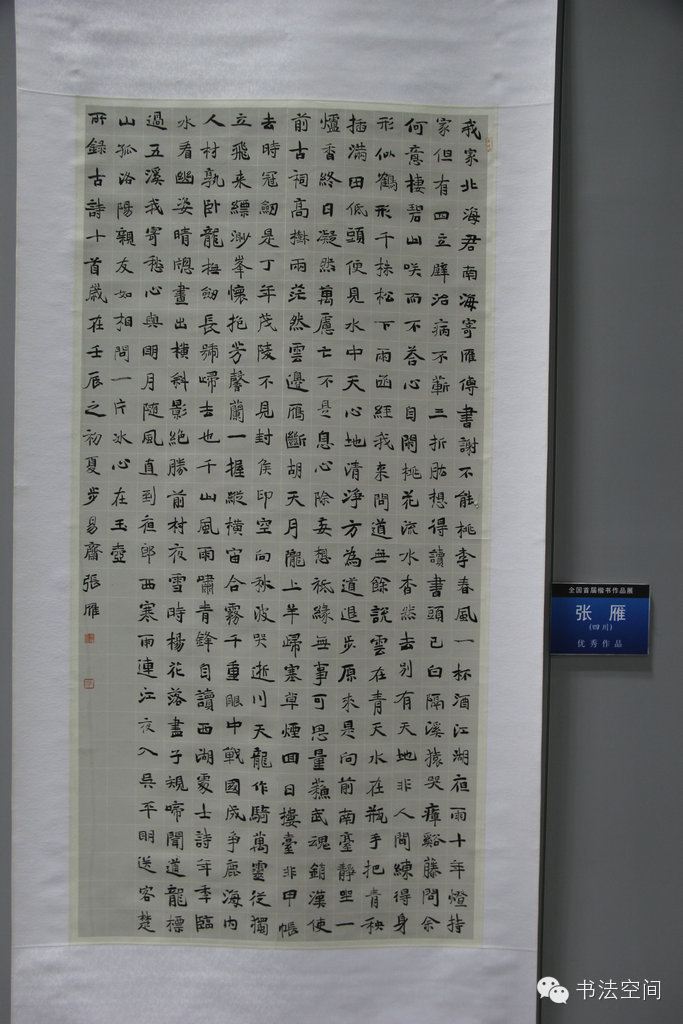 我家北海君南海寄雁傳書謝不能桃李春風一杯酒江湖夜雨十年燈持
家但有四立壁治病不蘄三折肱想得讀書頭已白隔溪猿哭瘴谿藤問余
何意棲碧山咲而不荅心自閑桃花流水杳然去別有天地非人間練得身
形似鶴形千株松下兩函經我来問道無餘說雲在青天水在瓶手把青秧
插滿田低頭便見水中天心地清淨方為道退步原來是向前南臺靜坐一
爐香終日凝然萬慮亡不是息心除妄想祗緣無事可思量蘇武魂銷漢使
前古祠高樹兩茫然雲邊鴈斷胡天月隴上羊歸塞草煙回日樓臺非甲帳
去時冠劍是丁年茂陵不見封侯印空向秋波哭逝川天龍作騎萬靈從獨
立飛来縹渺峯懷抱芳馨蘭一握縱橫宙合霧千重眼中戰國成爭鹿海内
人材孰臥龍撫劍長號歸去也千山風雨嘯青鋒自讀西湖處士詩年年臨
水看幽姿晴窗畫出橫斜影絕勝前村夜雪時楊花落盡子規啼聞道龍標
過五溪我寄愁心與明月隨風直到夜郎西寒雨連江夜入吳平明送客楚
山孤洛陽親友如相問一片冰心在玉壺
所錄古詩十首歲在壬辰之初夏步易齋張雁
全国首届楷书作品展
张 雁
(四川)
优秀作品
书法空间